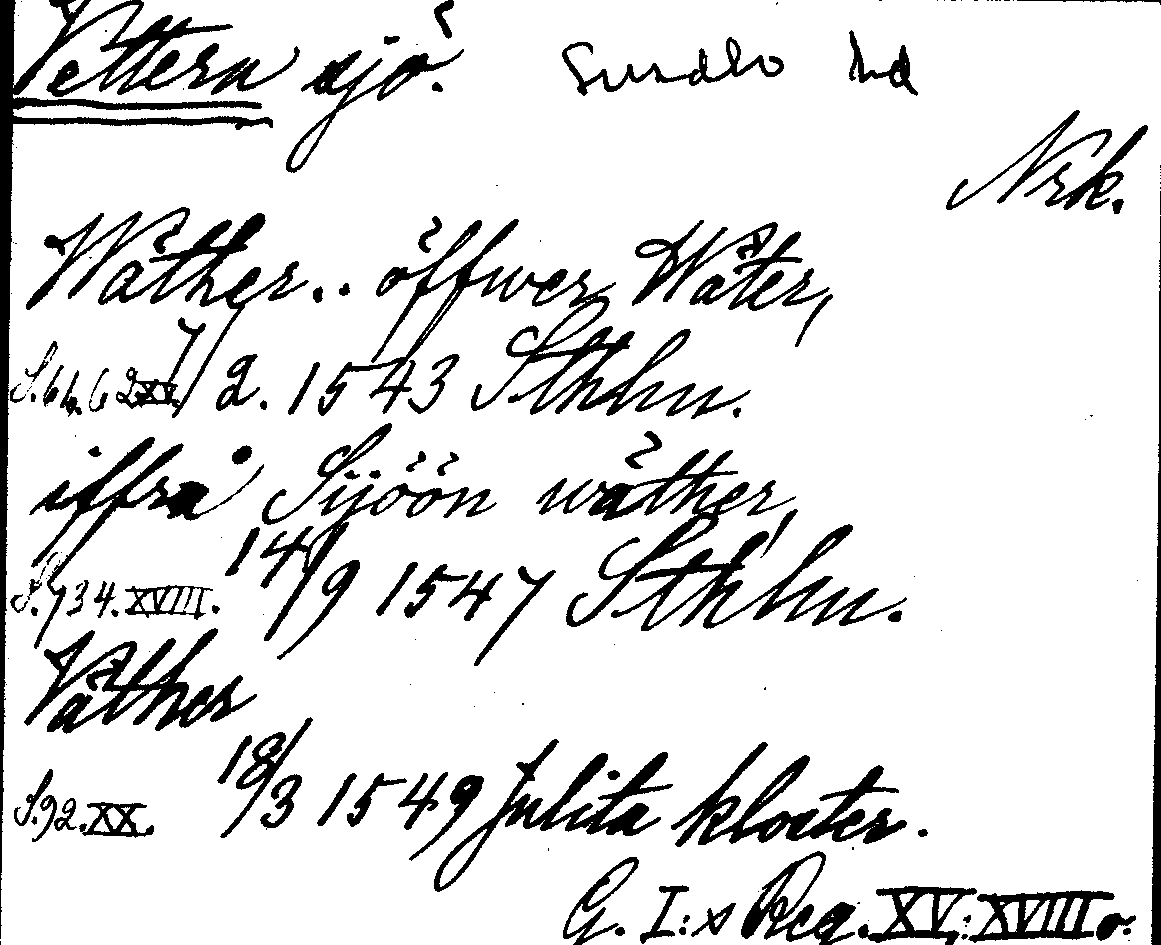 Vettern sjö. Sundbo hd
Nrk.
Wäther.. öffwer Wäter,
S. 64. 62 XV. 7/2. 1543 Sthlm.
iffrå Sijöön wäther,
S. 734. XVIII. 14/9 1547 Sthlm.
Väther
S. 92. XX. 18/3 1549 Julita kloster.
G. I:s Reg. XV, XVIII o.